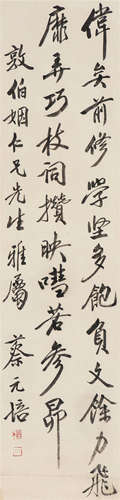 偉矣前修學堅多飽負文餘力飛
靡弄巧枝詞攢映嘒若參昴
敦伯姻仁兄先生雅屬
蔡元培